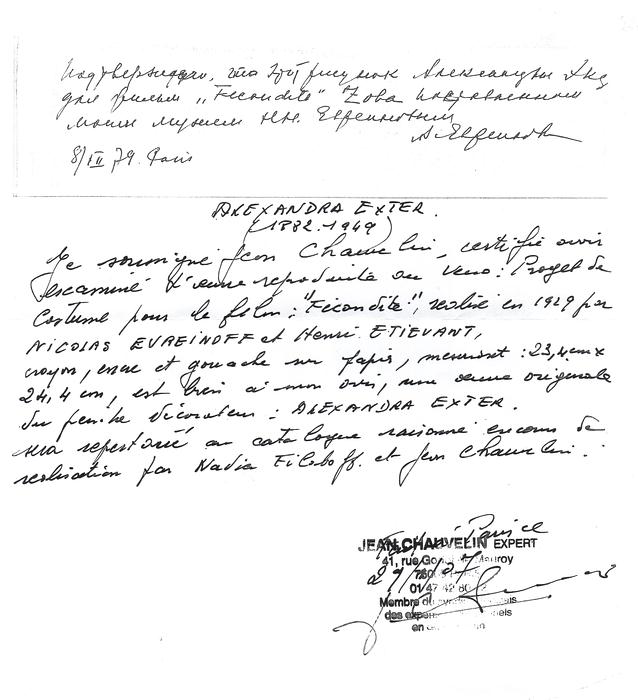 Подтверждаю, что этот рисунок Александры Экс
для фильма „Fécondité" Zola поставленного
моим мужем Н.Н. Евреиновым
А. Евреинова
79. Paris
ALEXANDRA EXTER.
(1882-1949)
Je soussigné Jean Chauvelin, certifie avoir
examiné l'œuvre reproduite au verso : Projet de
Costume pour le film : "Fécondité", réalisé en 1929 par
NICOLAS EVREINOFF et Henri ETIEVANT,
crayon, encre et gouache sur papier, mesurant : 23,4 cm x
24,4 cm, est bien à mon avis, une œuvre originale
du peintre décorateur : ALEXANDRA EXTER.
sera répertorié au catalogue raisonné en cours de
réalisation par Nadia Filatoff et Jean Chauvelin.
Fait à Paris le
JEAN CHAUVELIN EXPERT
41, rue Mauroy
01 47 42 80
Membre du
des
en